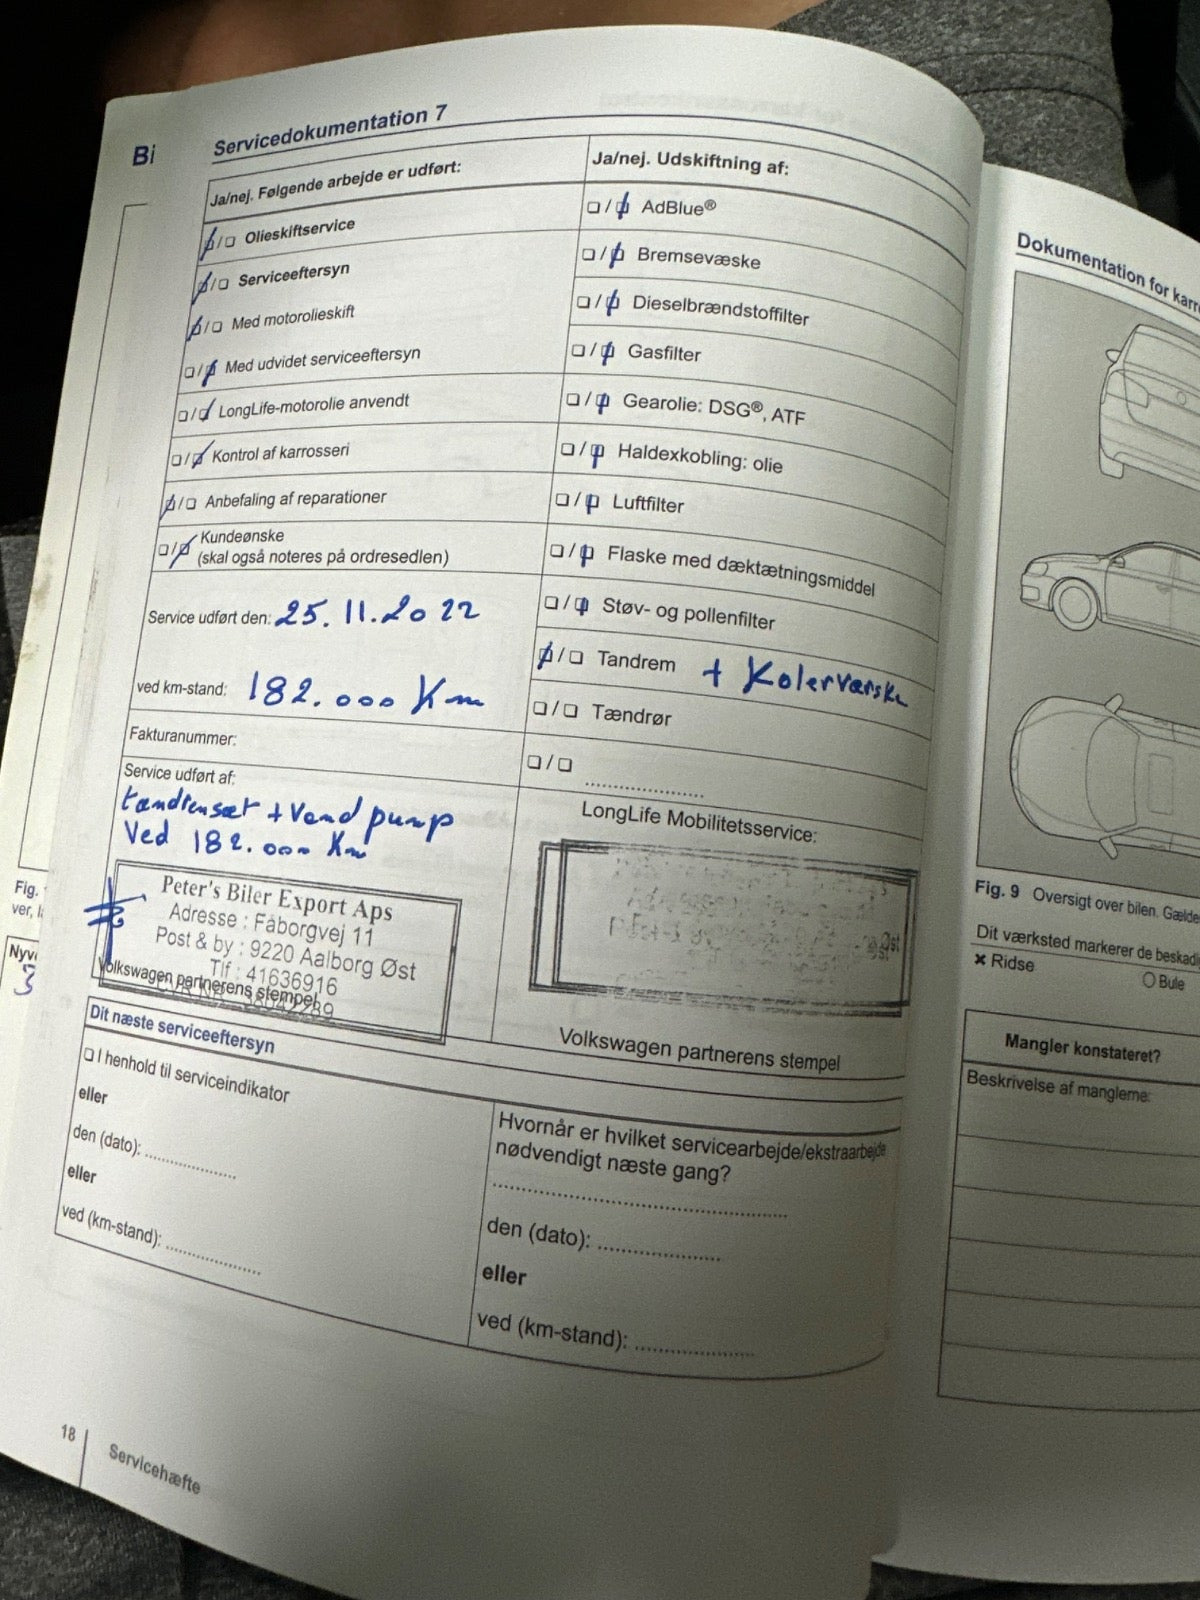 Bi
Servicedokumentation 7
Ja/nej. Følgende arbejde er udført:
❏/❏ Olieskiftservice
❏/❏ Serviceeftersyn
❏/❏ Med motorolieskift
❏/❏ Med udvidet serviceeftersyn
❏/❏ LongLife-motorolie anvendt
❏/❏ Kontrol af karrosseri
❏/❏ Anbefaling af reparationer
❏/❏ Kundeønske
(skal også noteres på ordresedlen)
Service udført den: 25.11.2022
ved km-stand: 182.000 Km
Fakturanummer:
Service udført af:
tandremsæt + Vand pump
Ved 182.000 Km
Peter's Biler Export Aps
Adresse : Fåborgvej 11
Post & by : 9220 Aalborg Øst
Tlf : 41636916
Volkswagen partnerens stempel
Ja/nej. Udskiftning af:
❏/❏ AdBlue®
❏/❏ Bremsevæske
❏/❏ Dieselbrændstoffilter
❏/❏ Gasfilter
❏/❏ Gearolie: DSG®, ATF
❏/❏ Haldexkobling: olie
❏/❏ Luftfilter
❏/❏ Flaske med dæktætningsmiddel
❏/❏ Støv- og pollenfilter
❏/❏ Tandrem + Kølerværske
❏/❏ Tændrør
❏/❏ ....................
LongLife Mobilitetsservice:
Øst
Volkswagen partnerens stempel
Dit næste serviceeftersyn
❏ I henhold til serviceindikator
eller
den (dato): ...............
eller
ved (km-stand): ...............
Hvornår er hvilket servicearbejde/ekstraarbejde
nødvendigt næste gang?
..................................................
den (dato): ....................
eller
ved (km-stand): ...................
18
Servicehæfte
Fig.
ver, l
Nyv
3
Dokumentation for karr
Fig. 9 Oversigt over bilen. Gælde
Dit værksted markerer de beskadi
✖ Ridse
○ Bule
Mangler konstateret?
Beskrivelse af manglerne: